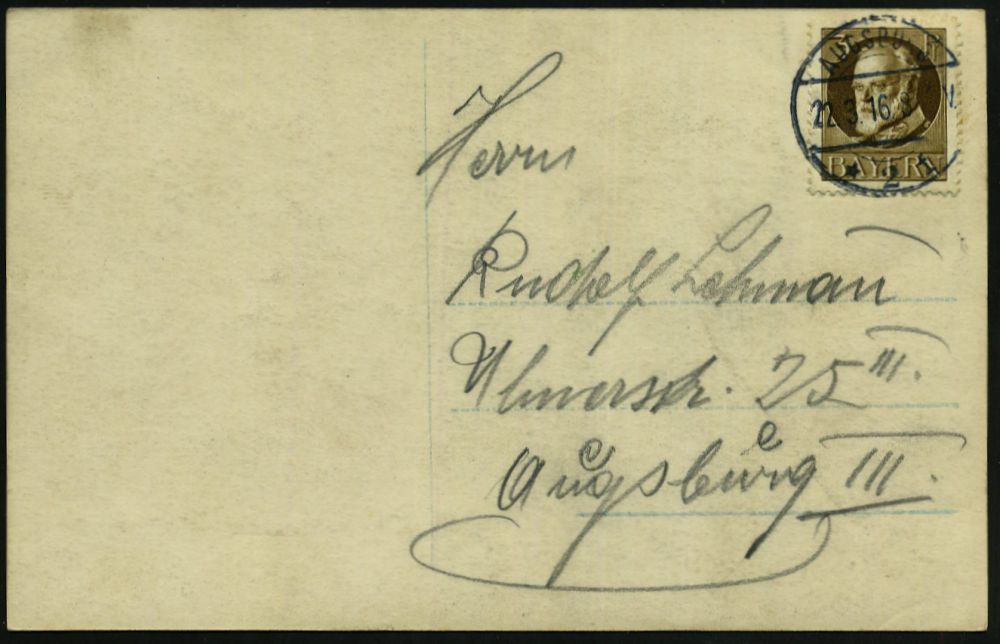 AUGSBURG
22.3.16.8
* 2 *
BAYERN
Herrn
Rudolf Lehman̅
Ulmerstr. 25 III.
Augsburg III.